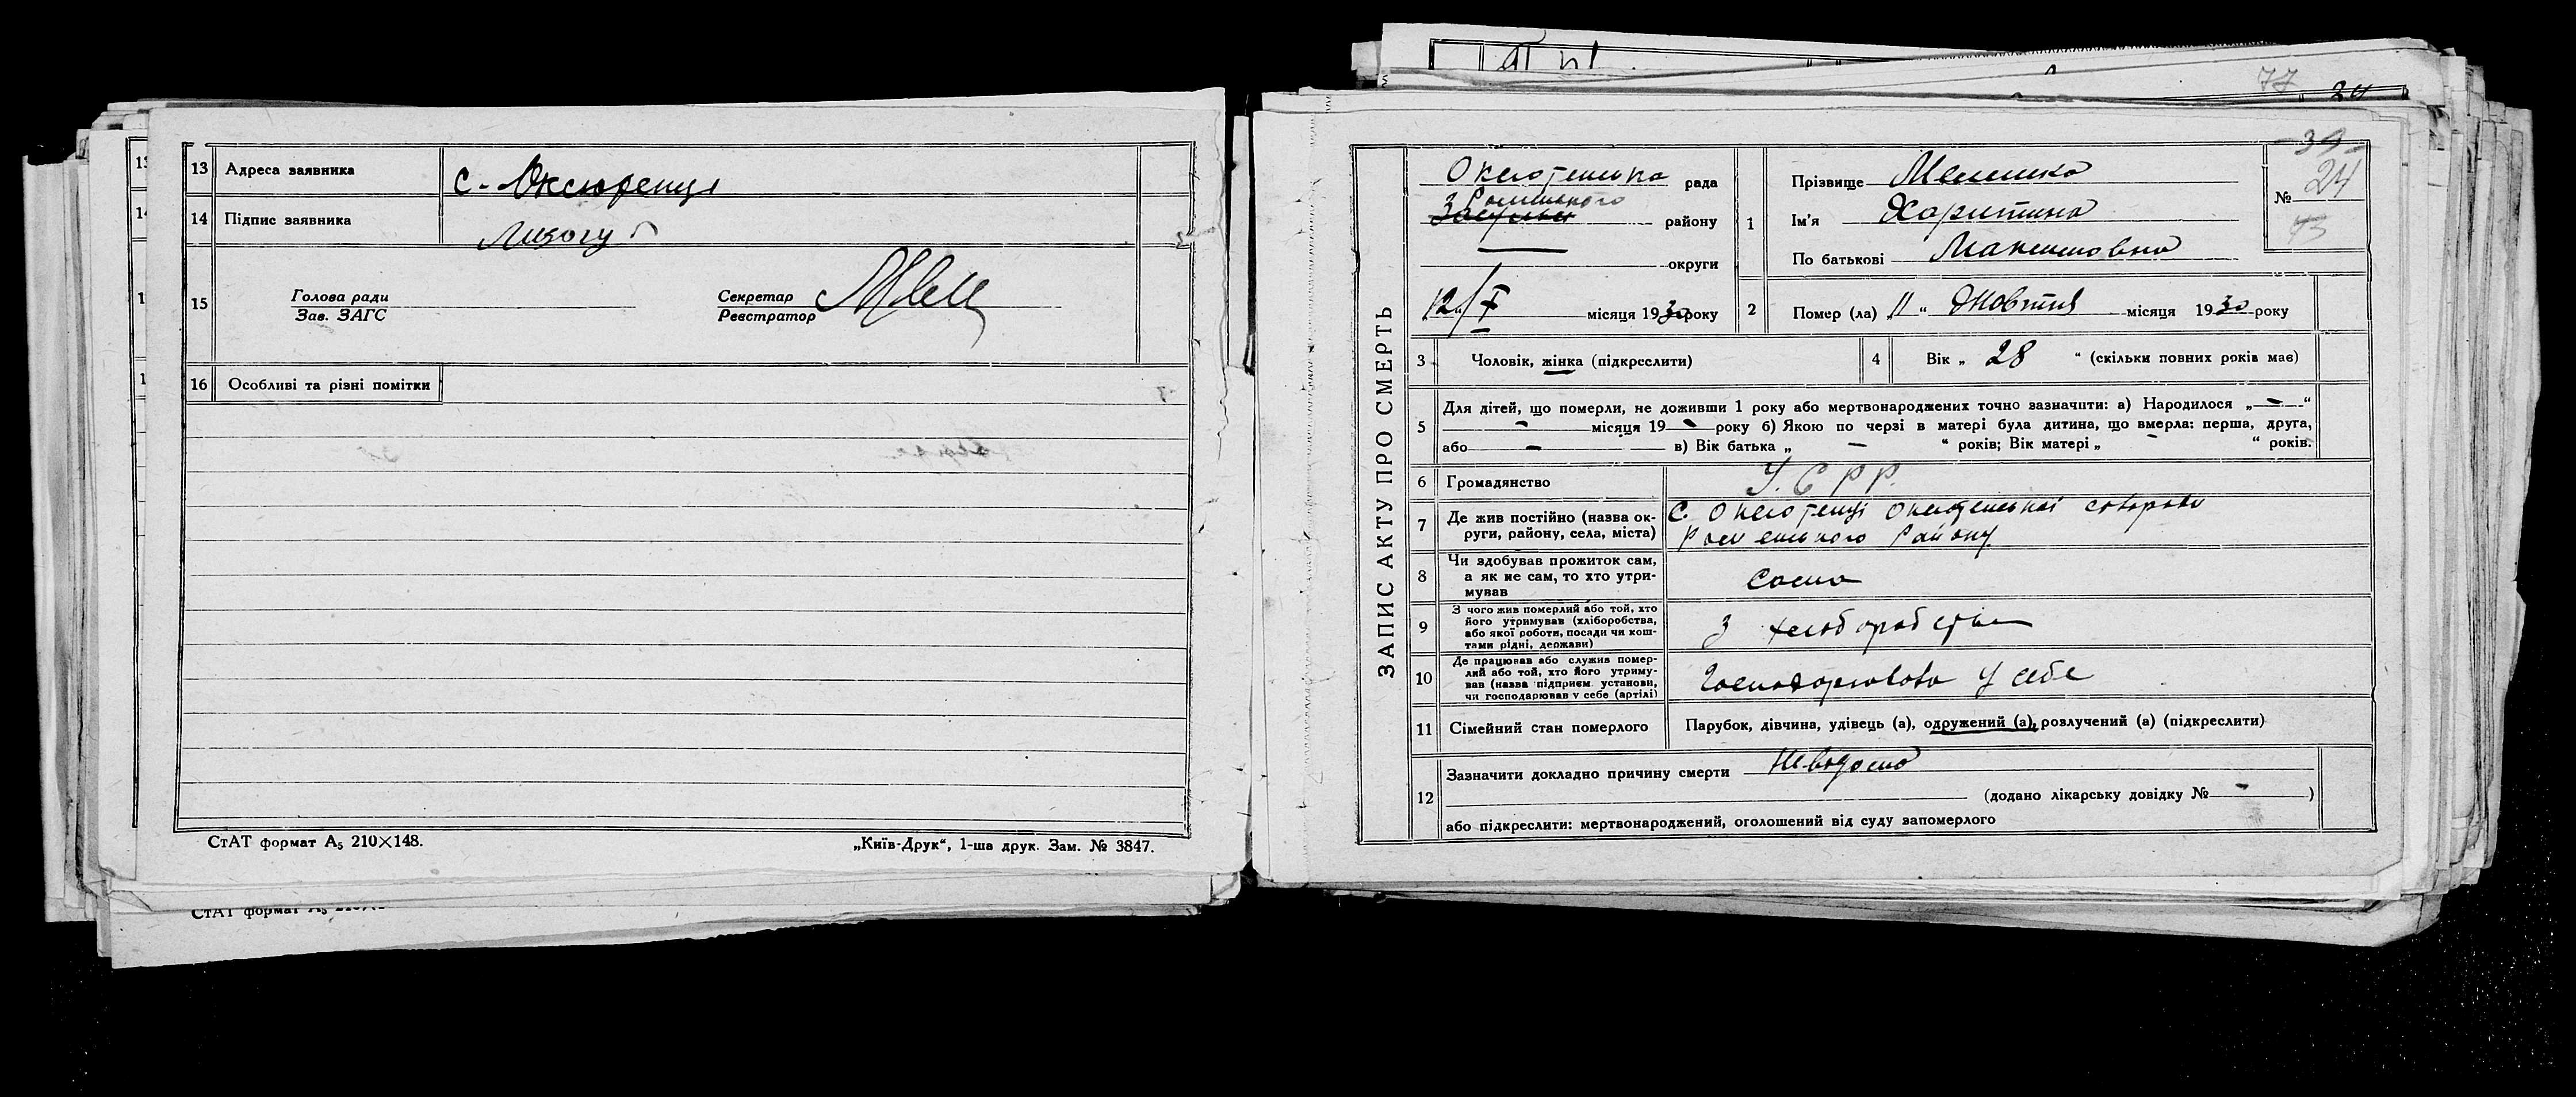 13 Адреса заявника с. Оксютенці
14 Підпис заявника Лизогу
15 Голова ради
Зав. ЗАГС
Секретар
Реєстратор
16 Особливі та різні помітки
СтАТ формат А₅ 210×148.
„Київ-Друк“, 1-ша друк. Зам. № 3847.
СтАТ формат А₅
77
24
ЗАПИС АКТУ ПРО СМЕРТЬ
Оксютенська рада
Роменського
району
округи
12/X місяця 1930 року
1 Прізвище
Ім'я Харитина
По батькові Максимовна
№ 24
2 Помер (ла) „11“ Жовтня місяця 1930 року
3 Чоловік, жінка (підкреслити)
4 Вік „ 28 “ (скільки повних років має)
5 Для дітей, що померли, не доживши 1 року або мертвонароджених точно зазначити: а) Народилося „ - “
- місяця 19 - року б) Якою по черзі в матері була дитина, що вмерла: перша, друга,
або - в) Вік батька „ - “ років; Вік матері „ - “ років.
6 Громадянство У.С.Р.Р.
7 Де жив постійно (назва ок-
руги, району, села, міста)
с. Оксютенці Оксютенської
Роменського Району
8 Чи здобував прожиток сам,
а як не сам, то хто утри-
мував
сама
9 З чого жив померлий або той, хто
його утримував (хліборобства,
або якої роботи, посади чи кош-
тами рідні, держави)
З хліборобства
10 Де працював або служив помер-
лий або той, хто його утриму-
вав (назва підприєм. установи,
чи господарював у себе (артілі)
Господарювала у себе
11 Сімейний стан померлого Парубок, дівчина, удівець (а), одружений (а), розлучений (а) (підкреслити)
12 Зазначити докладно причину смерти Невідома
(додано лікарську довідку № - )
або підкреслити: мертвонароджений, оголошений від суду запомерлого